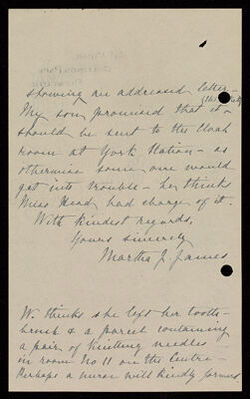 showing an addressed letter -
My son promised that it
should be sent to the Cloak
room at York Station - as
otherwise some one would
get into trouble - he thinks
Miss Head had charge of it.
With kindest regards,
Yours sincerely
Martha J. James
W. thinks she left her tooth-
brush & a parcel containing
a pair of knitting needles
in room No 11 on the Centre -
Perhaps a nurse will kindly forward